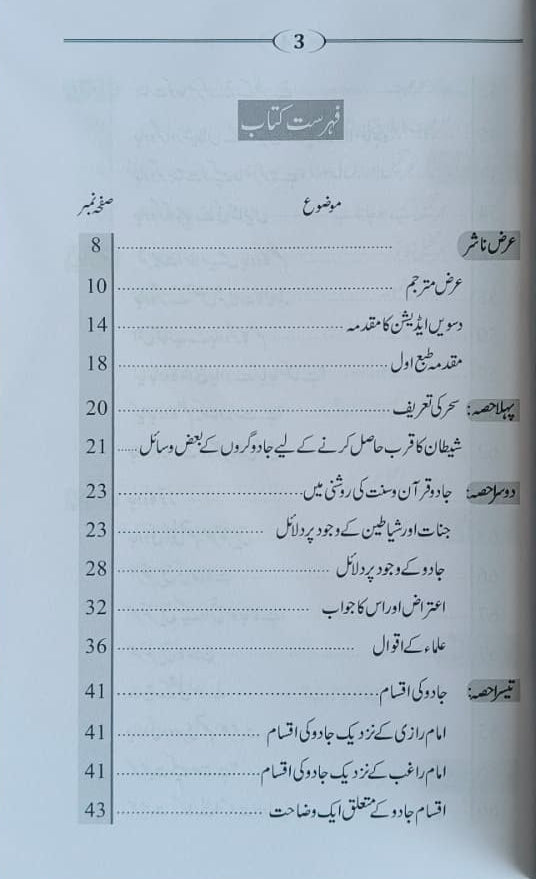 3
فہرست کتاب
موضوع صفحہ نمبر
عرض ناشر ........ 8
عرض مترجم ........ 10
دسویں ایڈیشن کا مقدمہ ........ 14
مقدمہ طبع اول ........ 18
پہلا حصہ: سحر کی تعریف ........ 20
شیطان کا قرب حاصل کرنے کے لیے جادوگروں کے بعض وسائل ..... 21
دوسرا حصہ: جادو قرآن وسنت کی روشنی میں ........ 23
جنات اور شیاطین کے وجود پر دلائل ........ 23
جادو کے وجود پر دلائل ........ 28
اعتراض اور اس کا جواب ........ 32
علماء کے اقوال ........ 36
تیسرا حصہ: جادو کی اقسام ........ 41
امام رازی کے نزدیک جادو کی اقسام ........ 41
امام راغب کے نزدیک جادو کی اقسام ........ 41
اقسام جادو کے متعلق ایک وضاحت ........ 43